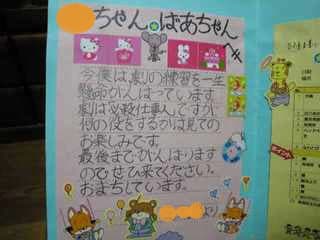 ちゃん・ばあちゃん
へ
今度は、劇の練習を一生
懸命がんばっています。
劇は「必殺仕事人」ですが、
何の役をするかは見ての
お楽しみです。
最後までがんばります
のでぜひ来てください。
おまちしています。
より